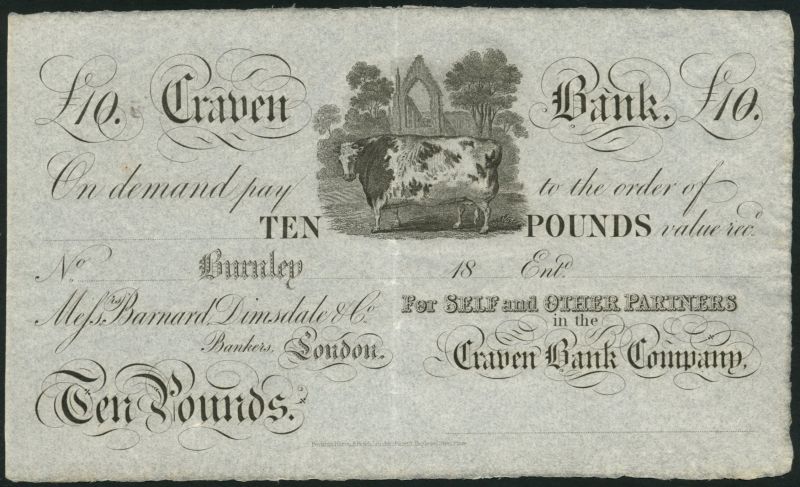 £10. Craven Bank. £10.
On demand pay to the order of
TEN POUNDS value recd.
No. Burnley 18 Entd.
Messrs. Barnard, Dimsdale & Co. For SELF and OTHER PARTNERS
Bankers, London. in the
Craven Bank Company,
Ten Pounds.